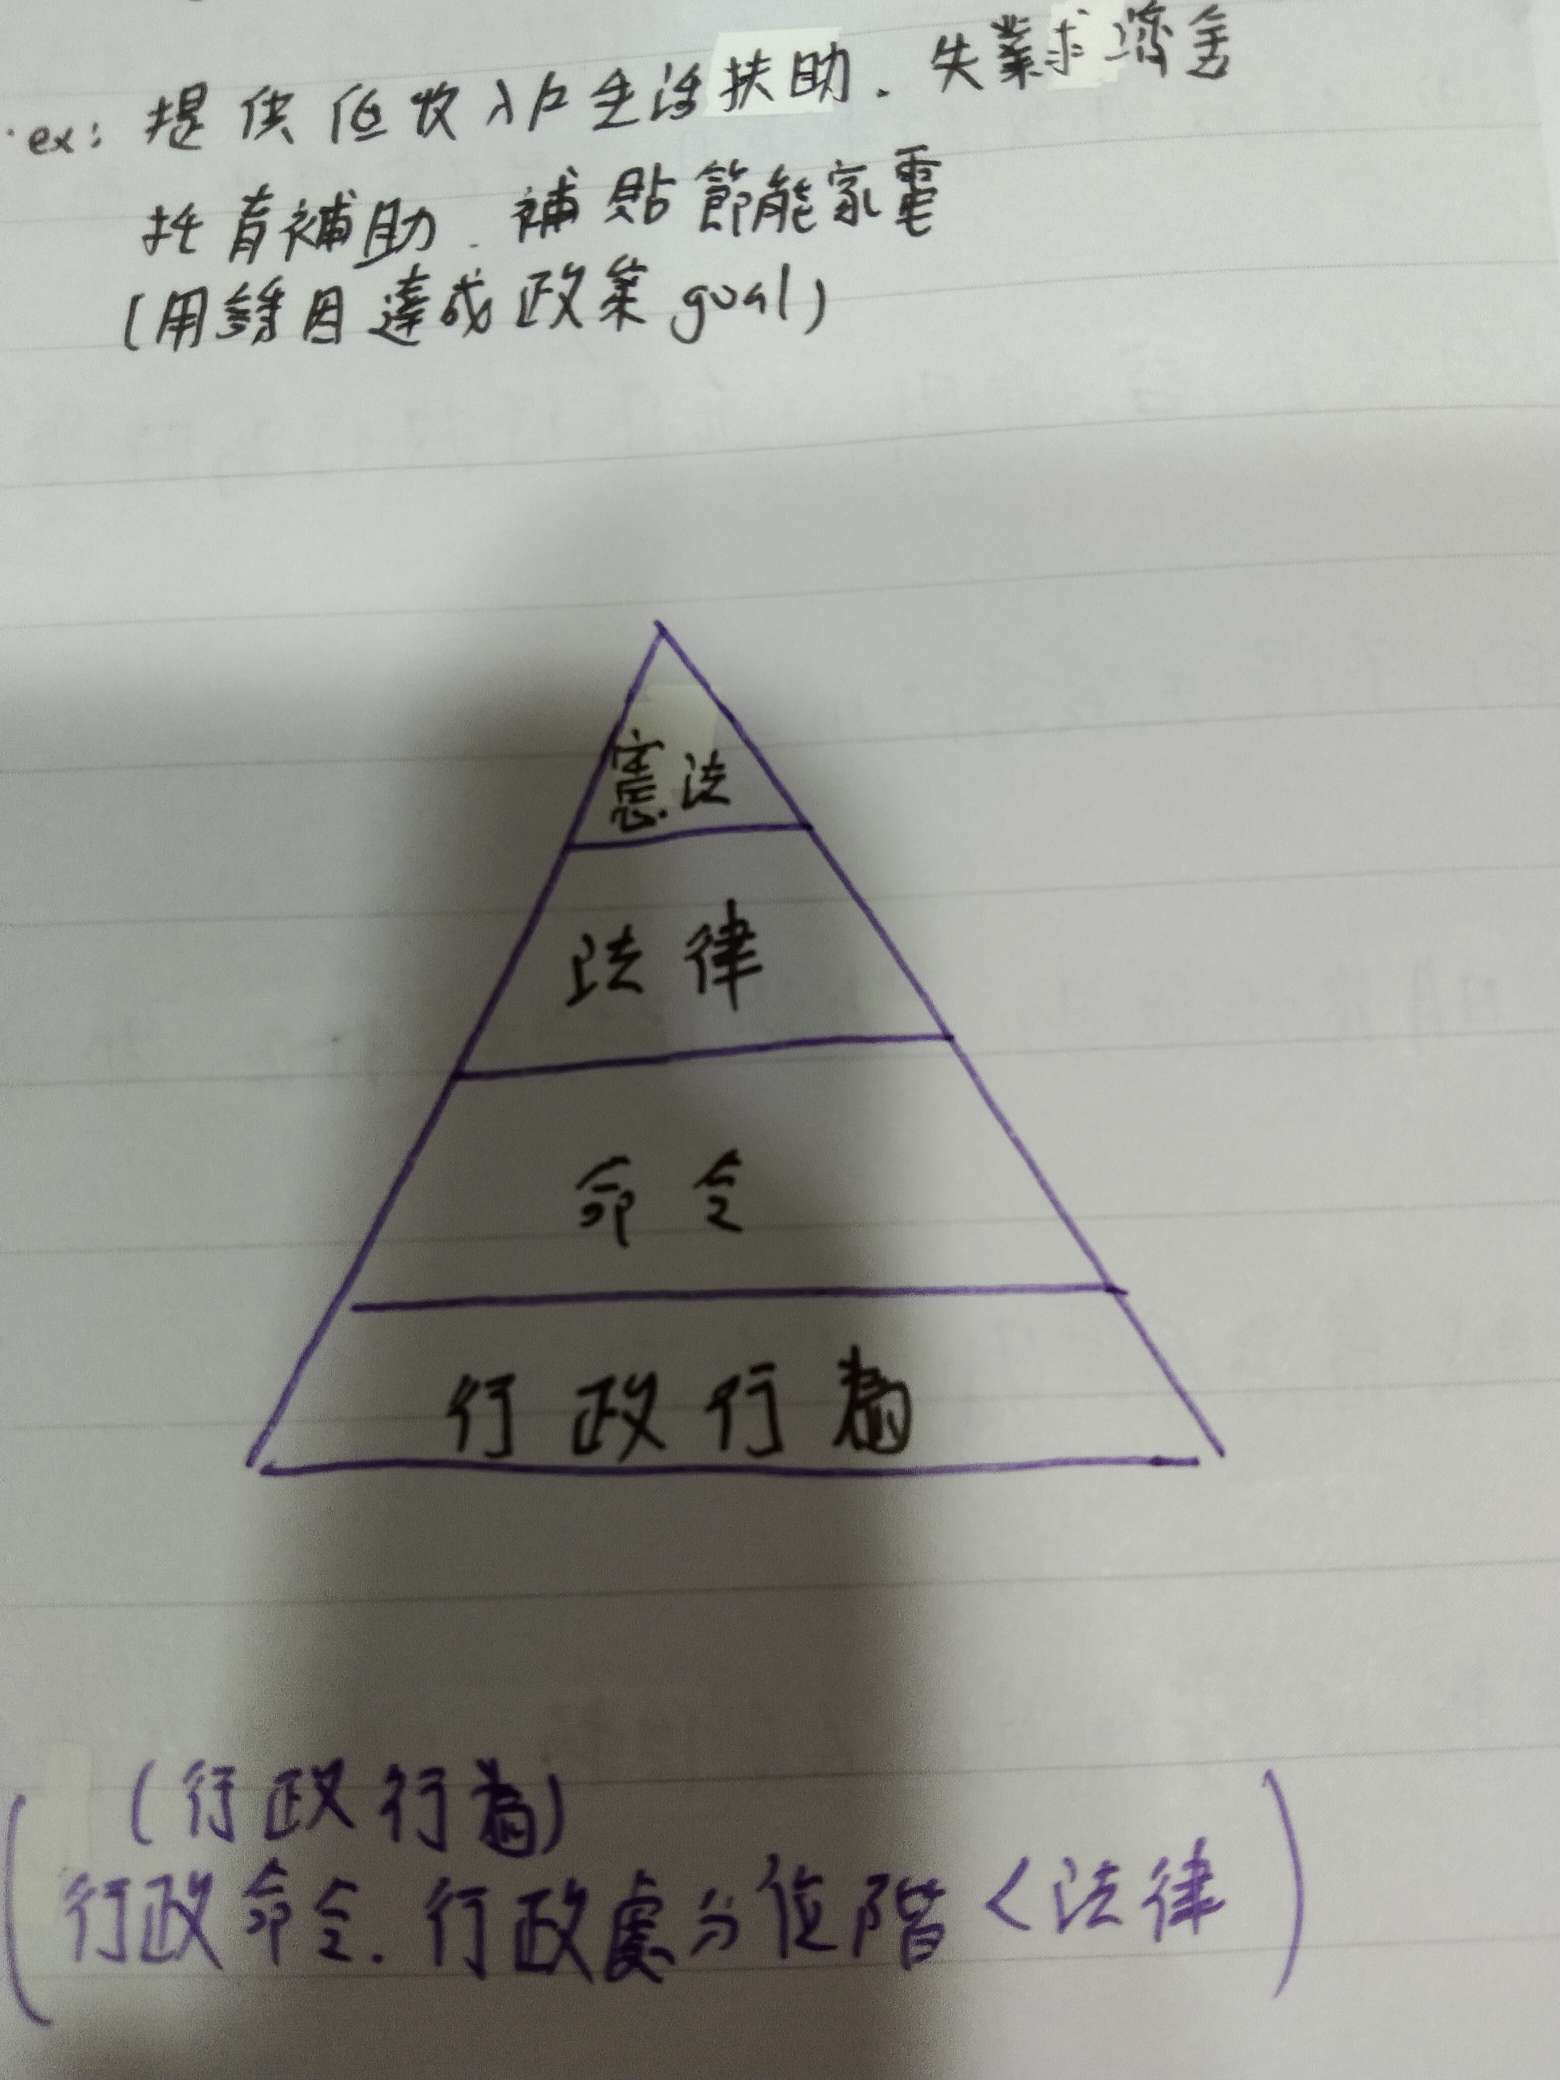 ex: 提供低收入戶生活扶助.失業求濟金
托育補助.補貼節能家電
(用錢目達成政策goal)
憲法
法律
命令
行政行為
(行政行為)
(行政命令.行政處分位階<法律)